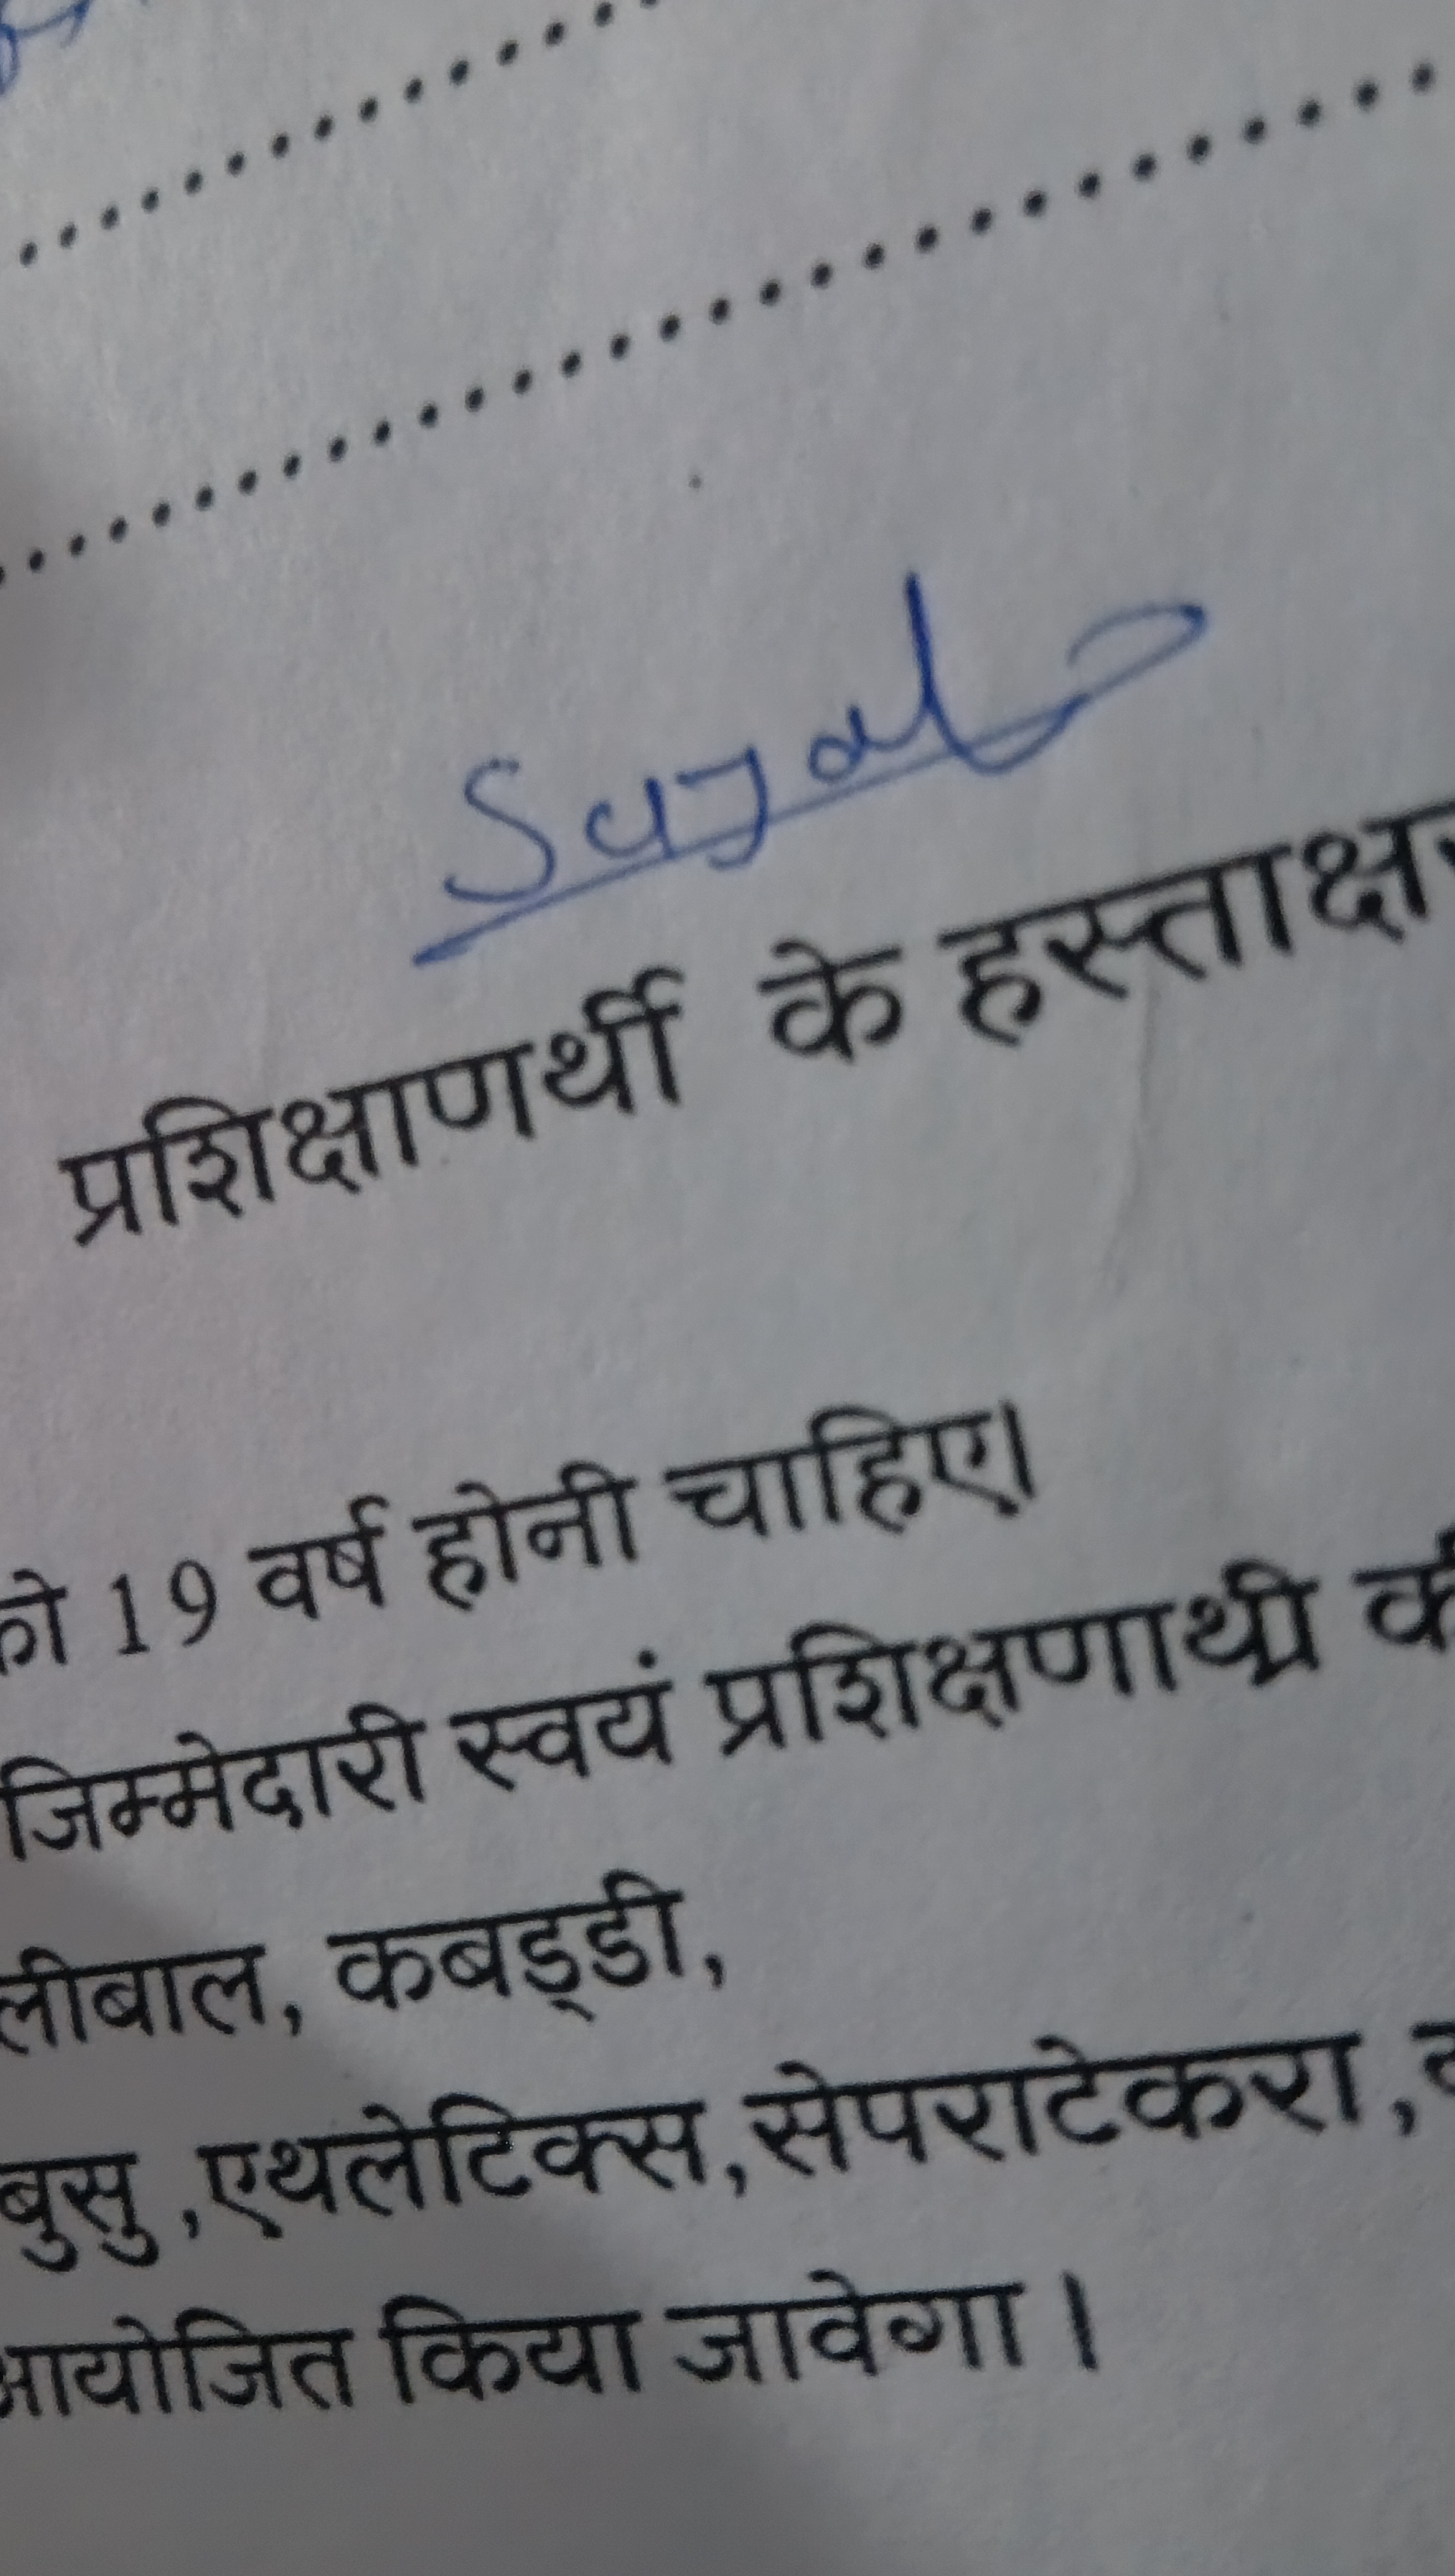 Sujal
प्रशिक्षाणर्थी के हस्ताक्ष
को 19 वर्ष होनी चाहिए।
जिम्मेदारी स्वयं प्रशिक्षणाथ्री की
लीबाल, कबड्डी,
बुसु ,एथलेटिक्स,सेपराटेकरा,
आयोजित किया जावेगा ।